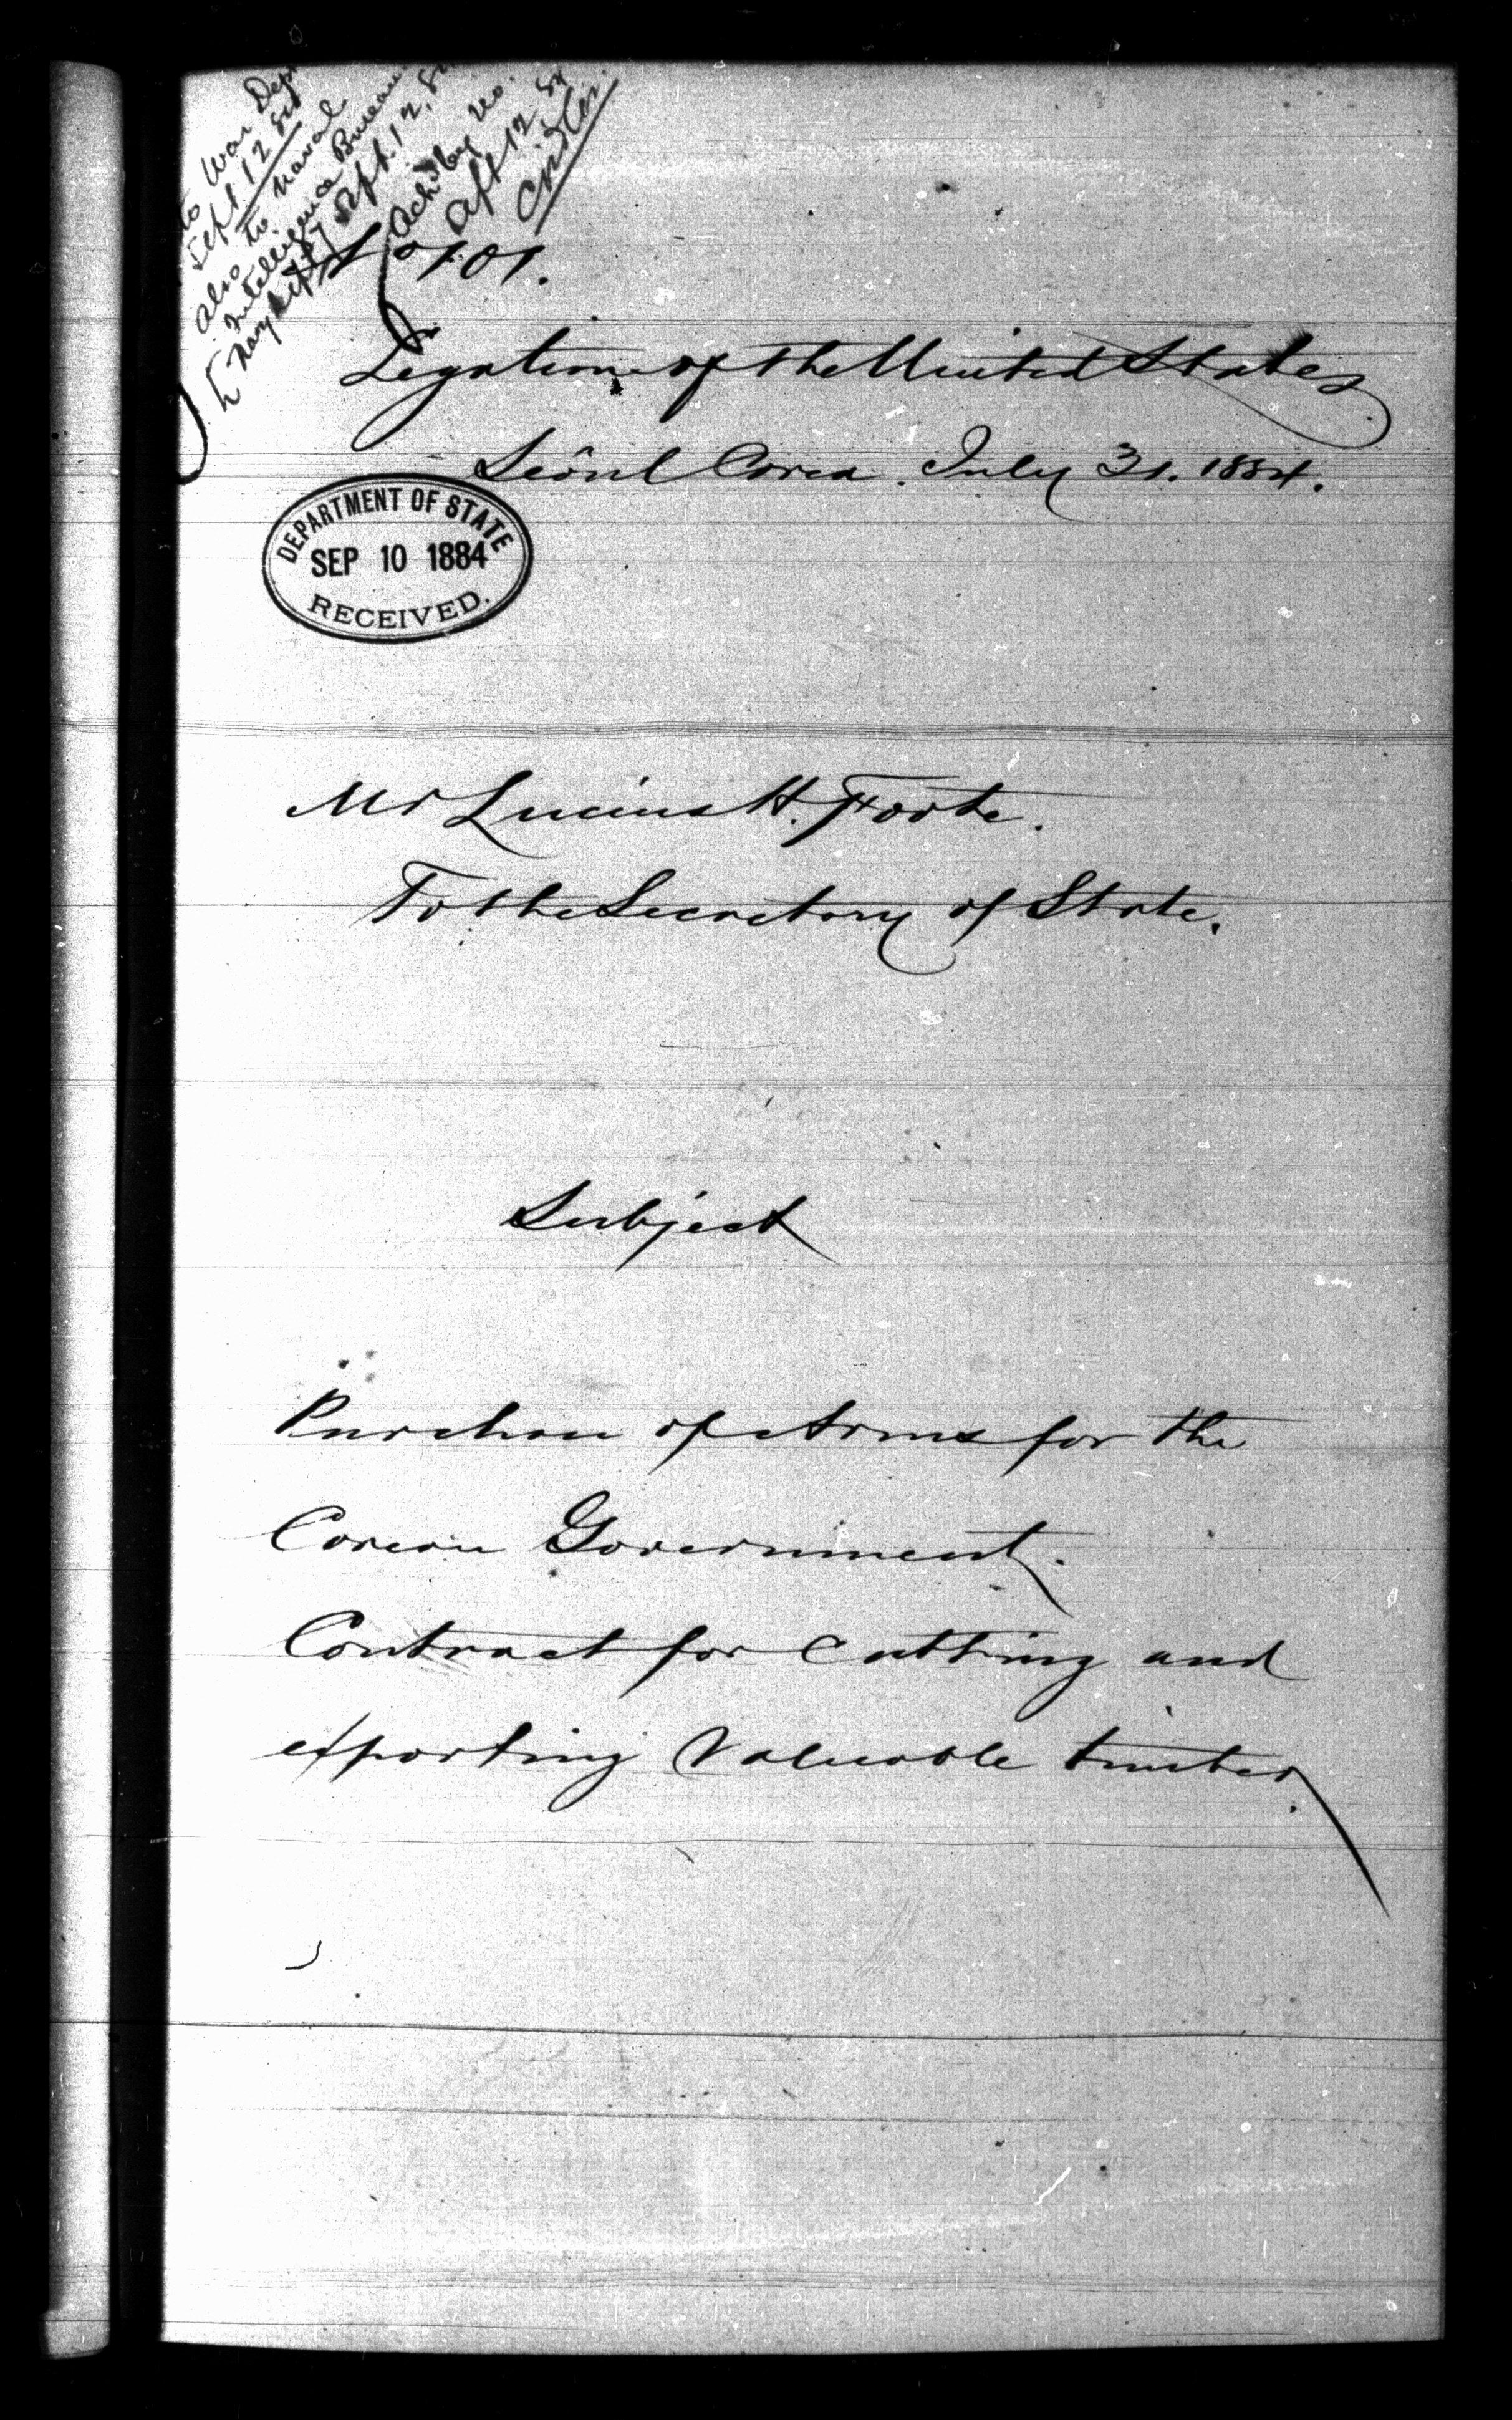 to War Dept
Sept. 12 84
also to Naval
Intelligence Bureau
Navy Dept Sept. 12, 84
Ackd by No.
Sept 12 84
Cridler.
No 101.
Legation of the United States
Seôul Corea. July 31. 1884.
DEPARTMENT OF STATE
SEP 10 1884
RECEIVED.
Mr Lucius H. Foote.
To the Secretary of State.
Subject
Purchase of Arms for the
Corean Government.
Contract for Cutting and
exporting Valuable timber.